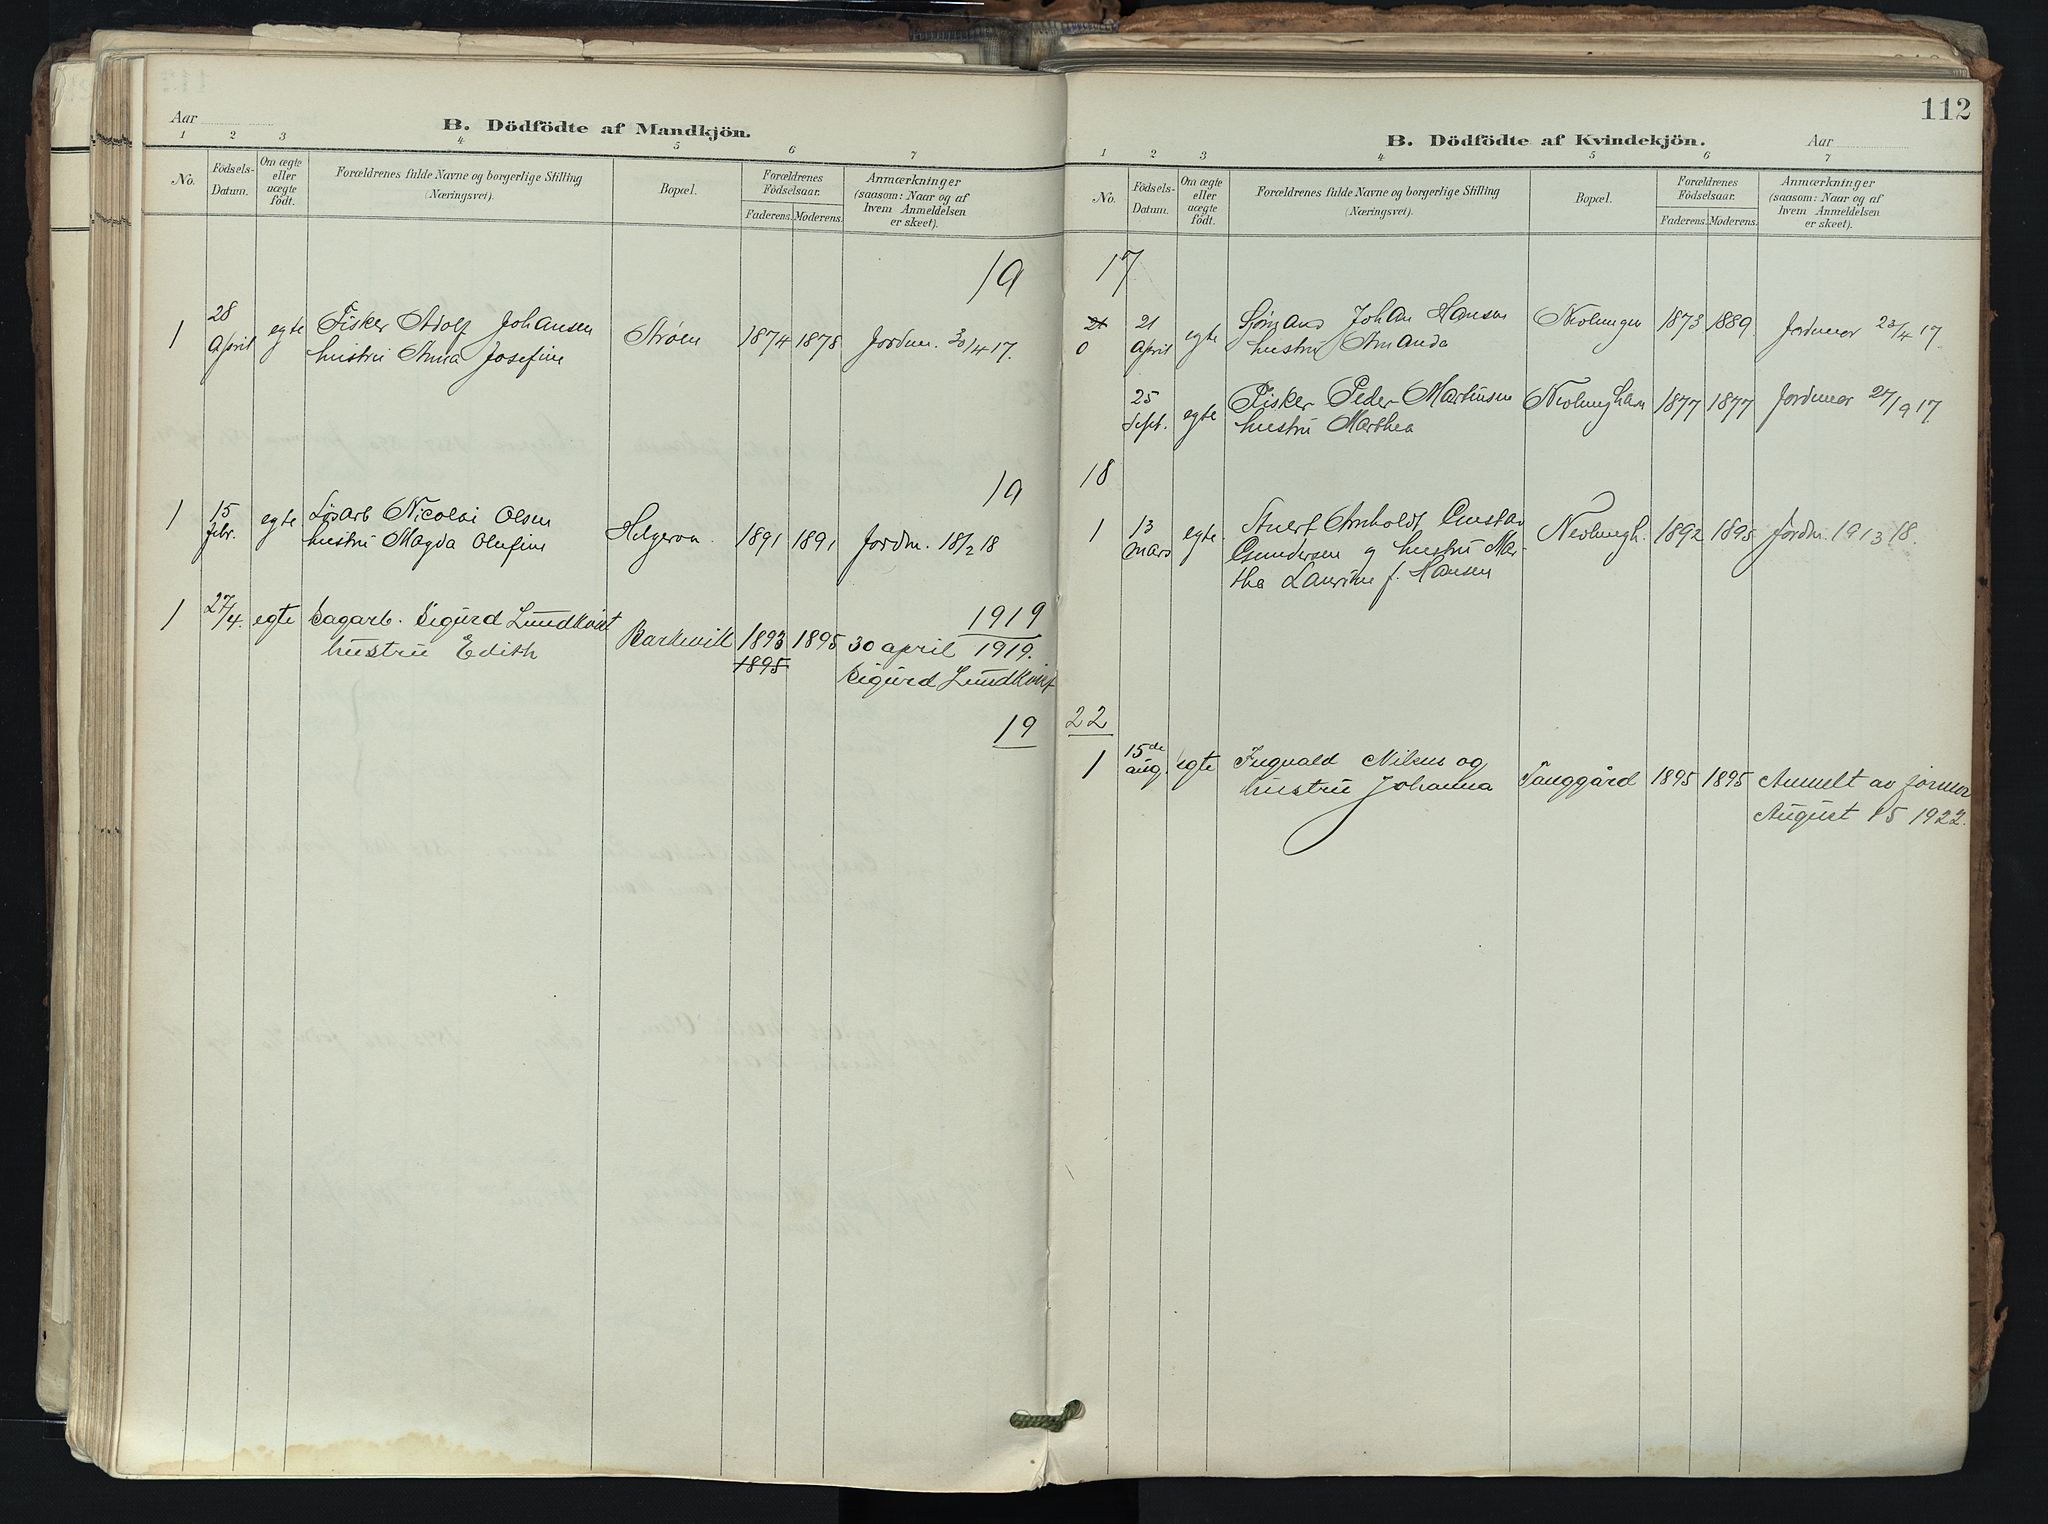 Aar
B. Dödfödte af Mandkjön.
1 2 3 4 5 6 7
No.
Födsels-Datum.
Om ægte eller uægte födt.
Forældrenes fulde Navne og borgerlige Stilling (Næringsvei).
Bopæl.
Forældrenes Födselsaar.
Faderens. Moderens.
Anmærkninger (saasom: Naar og af hvem Anmeldelsen er skeet).
19
1 28 April egte Fisker Adolf Johansen Strøen 1874 1878 Jordm. 30/4 17.
hustru Anna Josefine
19
1 15 febr. egte Løsarb Nicolai Olsen Helgeroa 1891 1891 Jordm. 18/2 18
hustru Magda Olufine
1919
1 27/4. egte Sagarb. Sigurd Lundkvist Barkevik 1893 1895 30 april 1919.
hustru Edith 1895 Sigurd Lundkvist
19
112
B. Dödfödte af Kvindekjön.
Aar
1 2 3 4 5 6 7
No.
Födsels-Datum.
Om ægte eller uægte födt.
Forældrenes fulde Navne og borgerlige Stilling (Næringsvei).
Bopæl.
Forældrenes Födselsaar.
Faderens. Moderens.
Anmærkninger (saasom: Naar og af hvem Anmeldelsen er skeet).
17
21 0 21 April egte Sjømand Johan Hansen 1873 1889. Jordmor 23/4 17.
hustru Amanda
25 Sept. egte Fisker Peder Martinsen Nevlungham 1877 1877 Jordmor 27/9 17
hustru Marthea
18
1 13 mars egte. Stuert Arnholdt Gustav Nevlungh. 1892 1895 Jordm. 19 13 18.
Gundersen og hustru Mar-
tha Laurine f. Hansen
22
1 15de aug. egte Ingvald Nilsen og Tanggård 1895 1895 Anmelt av jormor
hustru Johanna August 15 1922.